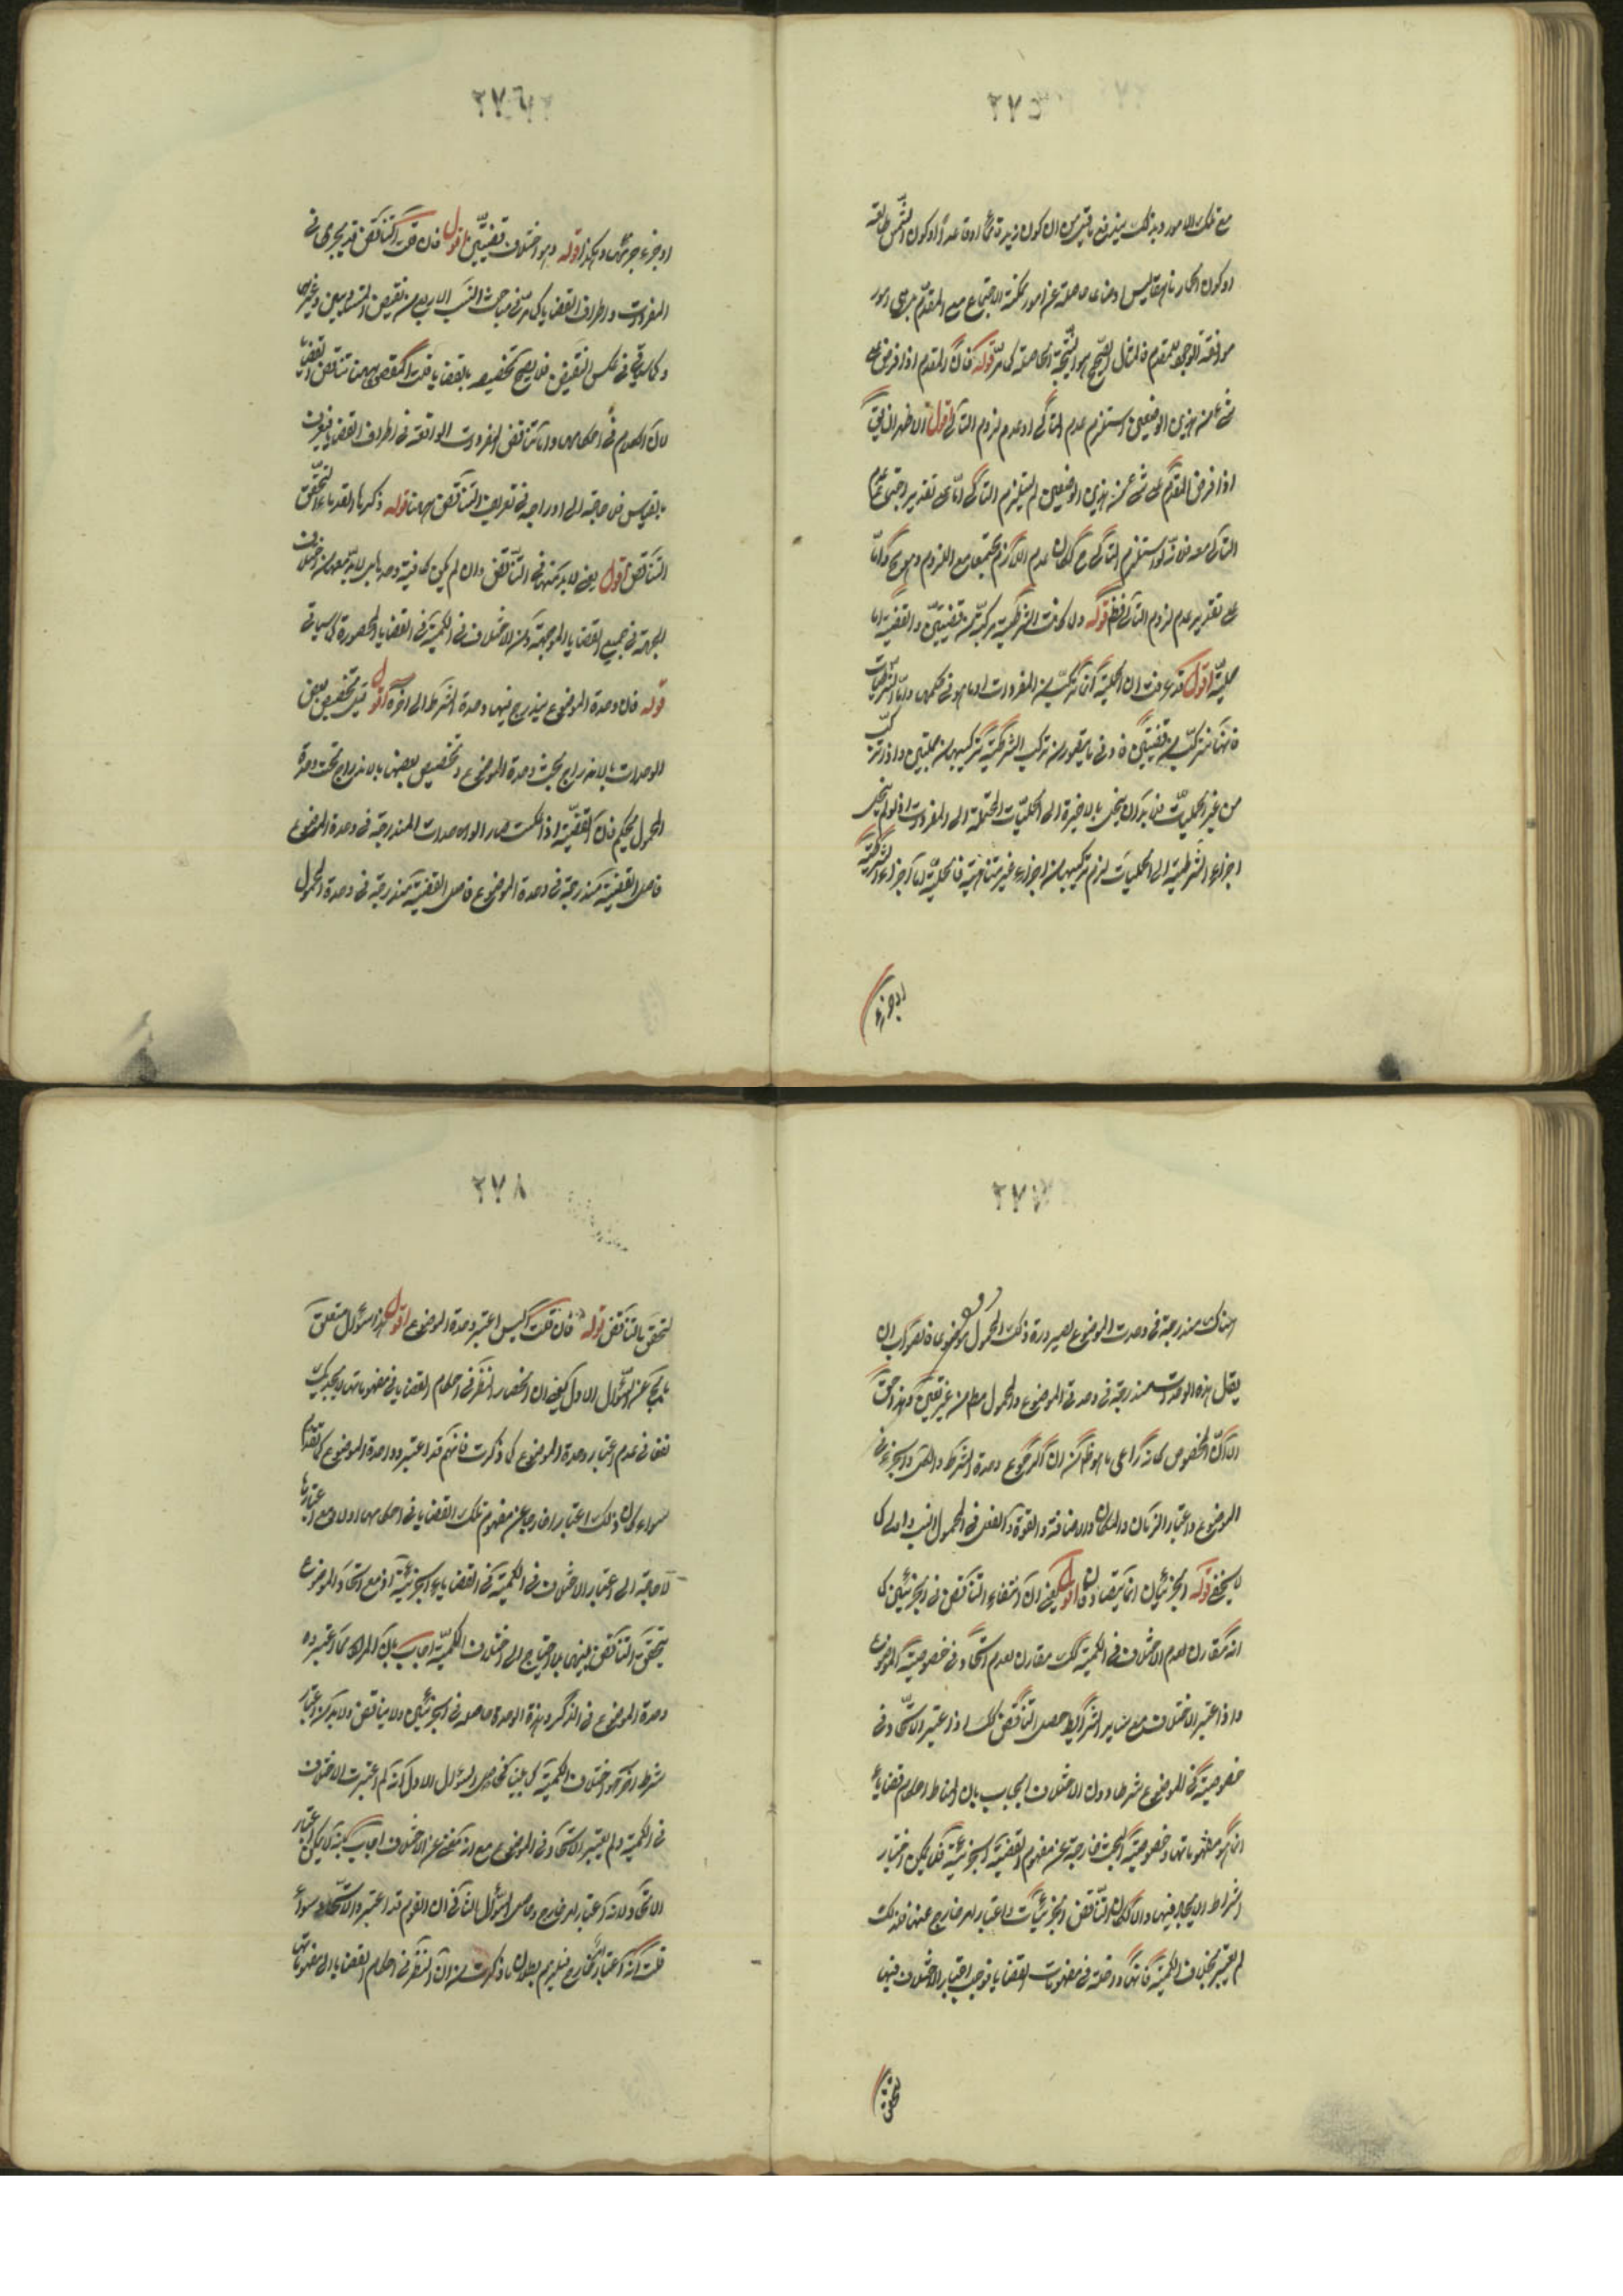 ٢٧٥
مع تلك الامور وبذلك يندفع ما قيل من ان كون زيد قائما او قاعدا او كون الشمس طالعة
او كون الحمار ناهقا ليس اوضاعا حاصلة عن امور ممكنة الاجتماع مع المقدم بل هي امور
موافقة الوجود للمقدم فالمثال الصحيح هو النتيجة الحاصلة كما مر قوله فان المقدم اذا فرض على
شيء من هذين الوضعين استلزم عدم التالي او عدم لزوم التالي اقول الاظهر ان يقال
اذا فرض المقدم على شيء من هذين الوضعين لم يستلزم التالي اما على تقدير اجتماع عدم
التالي معه فلانه لو استلزم التالي ح لكان عدم اللازم مجتمعا مع الملزوم وهو مح واما
على تقدير عدم لزوم التالي فظ قوله ولما كانت الشرطية مركبة من قضيتين والقضية اما
حملية اقول قد عرفت ان الحملية انما تتركب من المفردات او ما هو في حكمها واما الشرطيات
فانها تتركب من قضيتين فادنى ما يتصور من تركيب الشرطية تركيبها من حمليتين واذا تركب
من غير الحمليات فلا بد ان ينحل بالاخرة الى الحمليات المنحلة الى المفردات اذ لو لم ينحل
اجزاء الشرطية الى الحمليات لزم تركيبها من اجزاء غير متناهية فالحملية اما اجزاء الشرطية
او جزء
٢٧٦
او جزء جزئها وهكذا قوله وهو اختلاف قضيتين اقول فان قلت التناقض قد يجرى في
المفردات واطراف القضايا كما مر في مباحث النسب الاربع من نقيض المتساويين وغيرهما
وكما سياتي في عكس النقيض فلا يصح تخصيصه بالقضايا قلت المقصود ههنا تناقض القضايا
لان الكلام في احكامها واما تناقض المفردات الواقعة في اطراف القضايا فيعرف
بالقياس فلا حاجة الى ادراجه في تعريف التناقض ههنا قوله ذكرها القدماء لتحقق
التناقض اقول يعني لا بد منها في التناقض وان لم يكن كافية وحدها بل لا بد معها من اختلاف
الجهة في جميع القضايا الموجهة ومن الاختلاف في الكمية في القضايا المحصورة كما سياتي
قوله فان وحدة الموضوع يندرج فيها وحدة الشرط الى اخره اقول قيل تخصيص بعض
الوحدات بالاندراج تحت وحدة الموضوع وتخصيص بعضها بالاندراج تحت وحدة
المحمول تحكم فان القضية اذا عكست صار الوحدات المندرجة في وحدة الموضوع
في اصل القضية مندرجة في وحدة الموضوع في اصل القضية مندرجة في وحدة المحمول
٢٧٧
هناك مندرجة في وحدة الموضوع لصيرورة ذلك المحمول موضوعا فالصواب ان
يقال هذه الوحدات مندرجة في وحدتي الموضوع والمحمول مط من غير تعيين وهذا حق
الا ان المخصوص كانه راعى ما هو ظ من ان رجوع وحدة الشرط والكل والجزء في
الموضوع واعتبار الزمان والمكان والاضافة والقوة والفعل في المحمول انسب واولى كما
لا يخفى قوله الجزئيتان انما يتصادقان اقول يعني ان انتفاء التناقض في الجزئيتين كما
انه مقارن لعدم الاختلاف في الكمية كك مقارن لعدم اتحاد في خصوصية الموضوع
واذا اعتبر الاختلاف مع سائر الشرائط حصل التناقض كك اذا اعتبر الاتحاد في
خصوصية الموضوع شرطا دون الاختلاف اجاب بان المناط احكام قضايا
انما هو مفهوماتها وخصوصية البحث خارجة عن مفهوم القضية الجزئية فلا يمكن اعتبار
اشتراط الاتحاد فيها والا لكان التناقض الجزئيات باعتبار امر خارج عنها فلذلك
لم يعتبر بخلاف الكمية فانها داخلة في مفهومات القضايا فوجب اعتبار الاختلاف فيها
لتحقق
٢٧٨
لتحقق التناقض قوله فان قلت اليس اعتبر وحدة الموضوع اقول هذا سؤال متعلق
بالجواب عن السؤال الاول يعني ان انحصار النظر في احكام القضايا في مفهوماتها لا يجديك
نفعا في عدم اعتبار وحدة الموضوع كما ذكرت فانهم قد اعتبروا وحدة الموضوع كما تقدم
سواء كان ذلك اعتبار خارجا عن مفهوم تلك القضايا في احكامها اولا ومع اعتبارها
لا حاجة الى اعتبار الاختلاف في الكمية في القضايا الجزئية اذ مع اتحاد الموضوع
يتحقق التناقض بينهما بلا احتياج الى اختلاف الكمية اجاب بان المراد مما اعتبروه
وحدة الموضوع في الذكر وهذه الوحدة حاصلة في الجزئيتين ولا يتناقض ولا بد من اعتبار
شرط اخر هو اختلاف الكمية كما بينا فحاصل السؤال الاول انه لم اعتبرت الاختلاف
في الكمية ولم يعتبر الاتحاد في الموضوع مع انه مغن عن الاختلاف اجاب بانه لا يمكن اعتبار
الاتحاد لانه اعتبار امر خارج وحاصل السؤال الثاني ان القوم قد اعتبروا الاتحاد سواء
قلت انه اعتبار امر خارج فيلزم بطلان ما ذكرت من ان النظر في احكام القضايا الى مفهوماتها